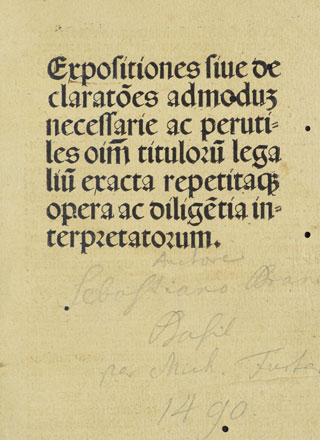 Expoſitiones ſiue de
claratōes admoduꝫ
neceſſarie ac peruti-
les oim̄ titulorū lega
liū exacta repetitaqꝫ
opera ac diligētia in-
terpretatorum.
Autore
Sebaſtiano Bran
Basil
per Mich. Furta
1490.